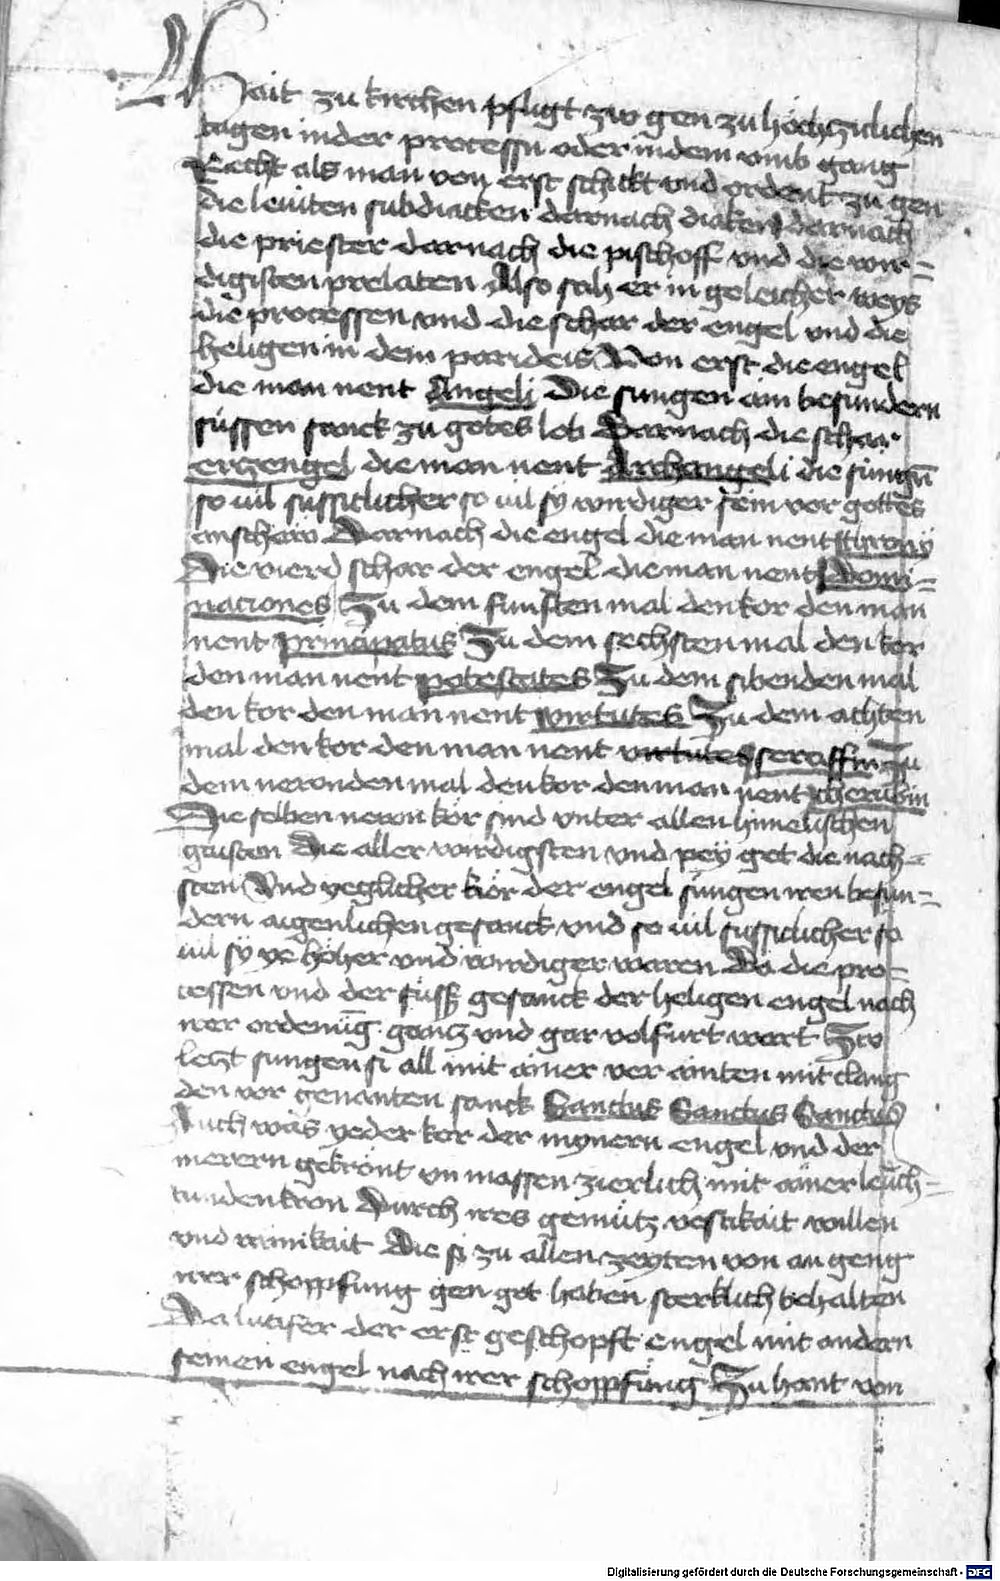 hait zu kirchen pfligt zw gen zu hochzitlichen
tagen in der processn oder in dem umb gang
Recht als man von erst schickt vnd ordent zu gen
die leuiten subdiacken darnach diaken darnach
die priester darnach die pischoff vnd die wir=
digisten prelaten Also sach er in geleicher weys
die processen vnd die schar der engel vnd die
heligen in dem parideis Von erst die engel
die man nent Angeli Die sungen ain besundern
süssen sanck zu gotes lob Darnach die schar
erczengel die man nent Archangeli die sungn̄
so uil süssiclicher so uil sy wirdiger sein vor gottes
anschaw Darnach die engel die man nent throny
Die vierd schar der engel die man nent Domi=
naciones Zu dem funften mal den kor den man
nent principatus Zu dem sechsten mal den kor
den man nent potestates Zu dem sibenden mal
den kor den man nent virtutes Zu dem achten
mal den kor den man nent virtutes seraffin Zu
dem neronden mal den kor den man nent cherubin
Die selben newn kör sind vnter allen himelischen
gaisten Die aller wirdigsten vnd pey got die nach=
sten Vnd yeglicher kör der engel sungen iren besun=
dern aigenlichen gesanck vnd so uil süssiclicher so
uil sy ye höher vnd wirdiger waren Da die pro=
cessen vnd der süss gesanck der heligen engel nach
irer ordenūg gantz vnd gar volfurt wart Zw
letzt sungen si all mit ainer ver ainten mit clang
den vor genanten sanck Sanctus Sanctus Sanctus
Auch was yeder kor der mynern engel vnd der
merern gekrönt vn massen zierlich mit ainer leuch=
tunden kron Durch ires gemütz vestikait willen
vnd rainikait Die si zu allen zeyten von an geng
irer schoppfung gen got haben sterklich behalten
Da lucifer der erst geschopft engel mit andern
seinen engel nach irer schoppfung Zu hant von
Digitalisierung gefördert durch die Deutsche Forschungsgemeinschaft - DFG